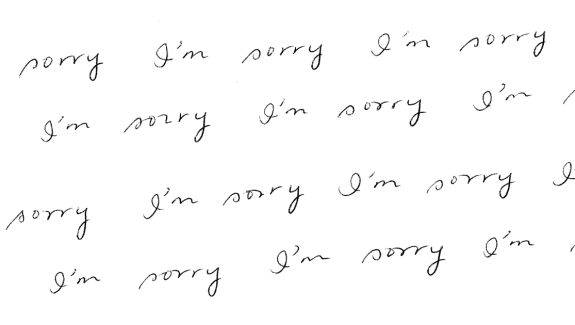 sorry I'm sorry I'm sorry
I'm sorry I'm sorry I'm
sorry I'm sorry I'm sorry I
I'm sorry I'm sorry I'm